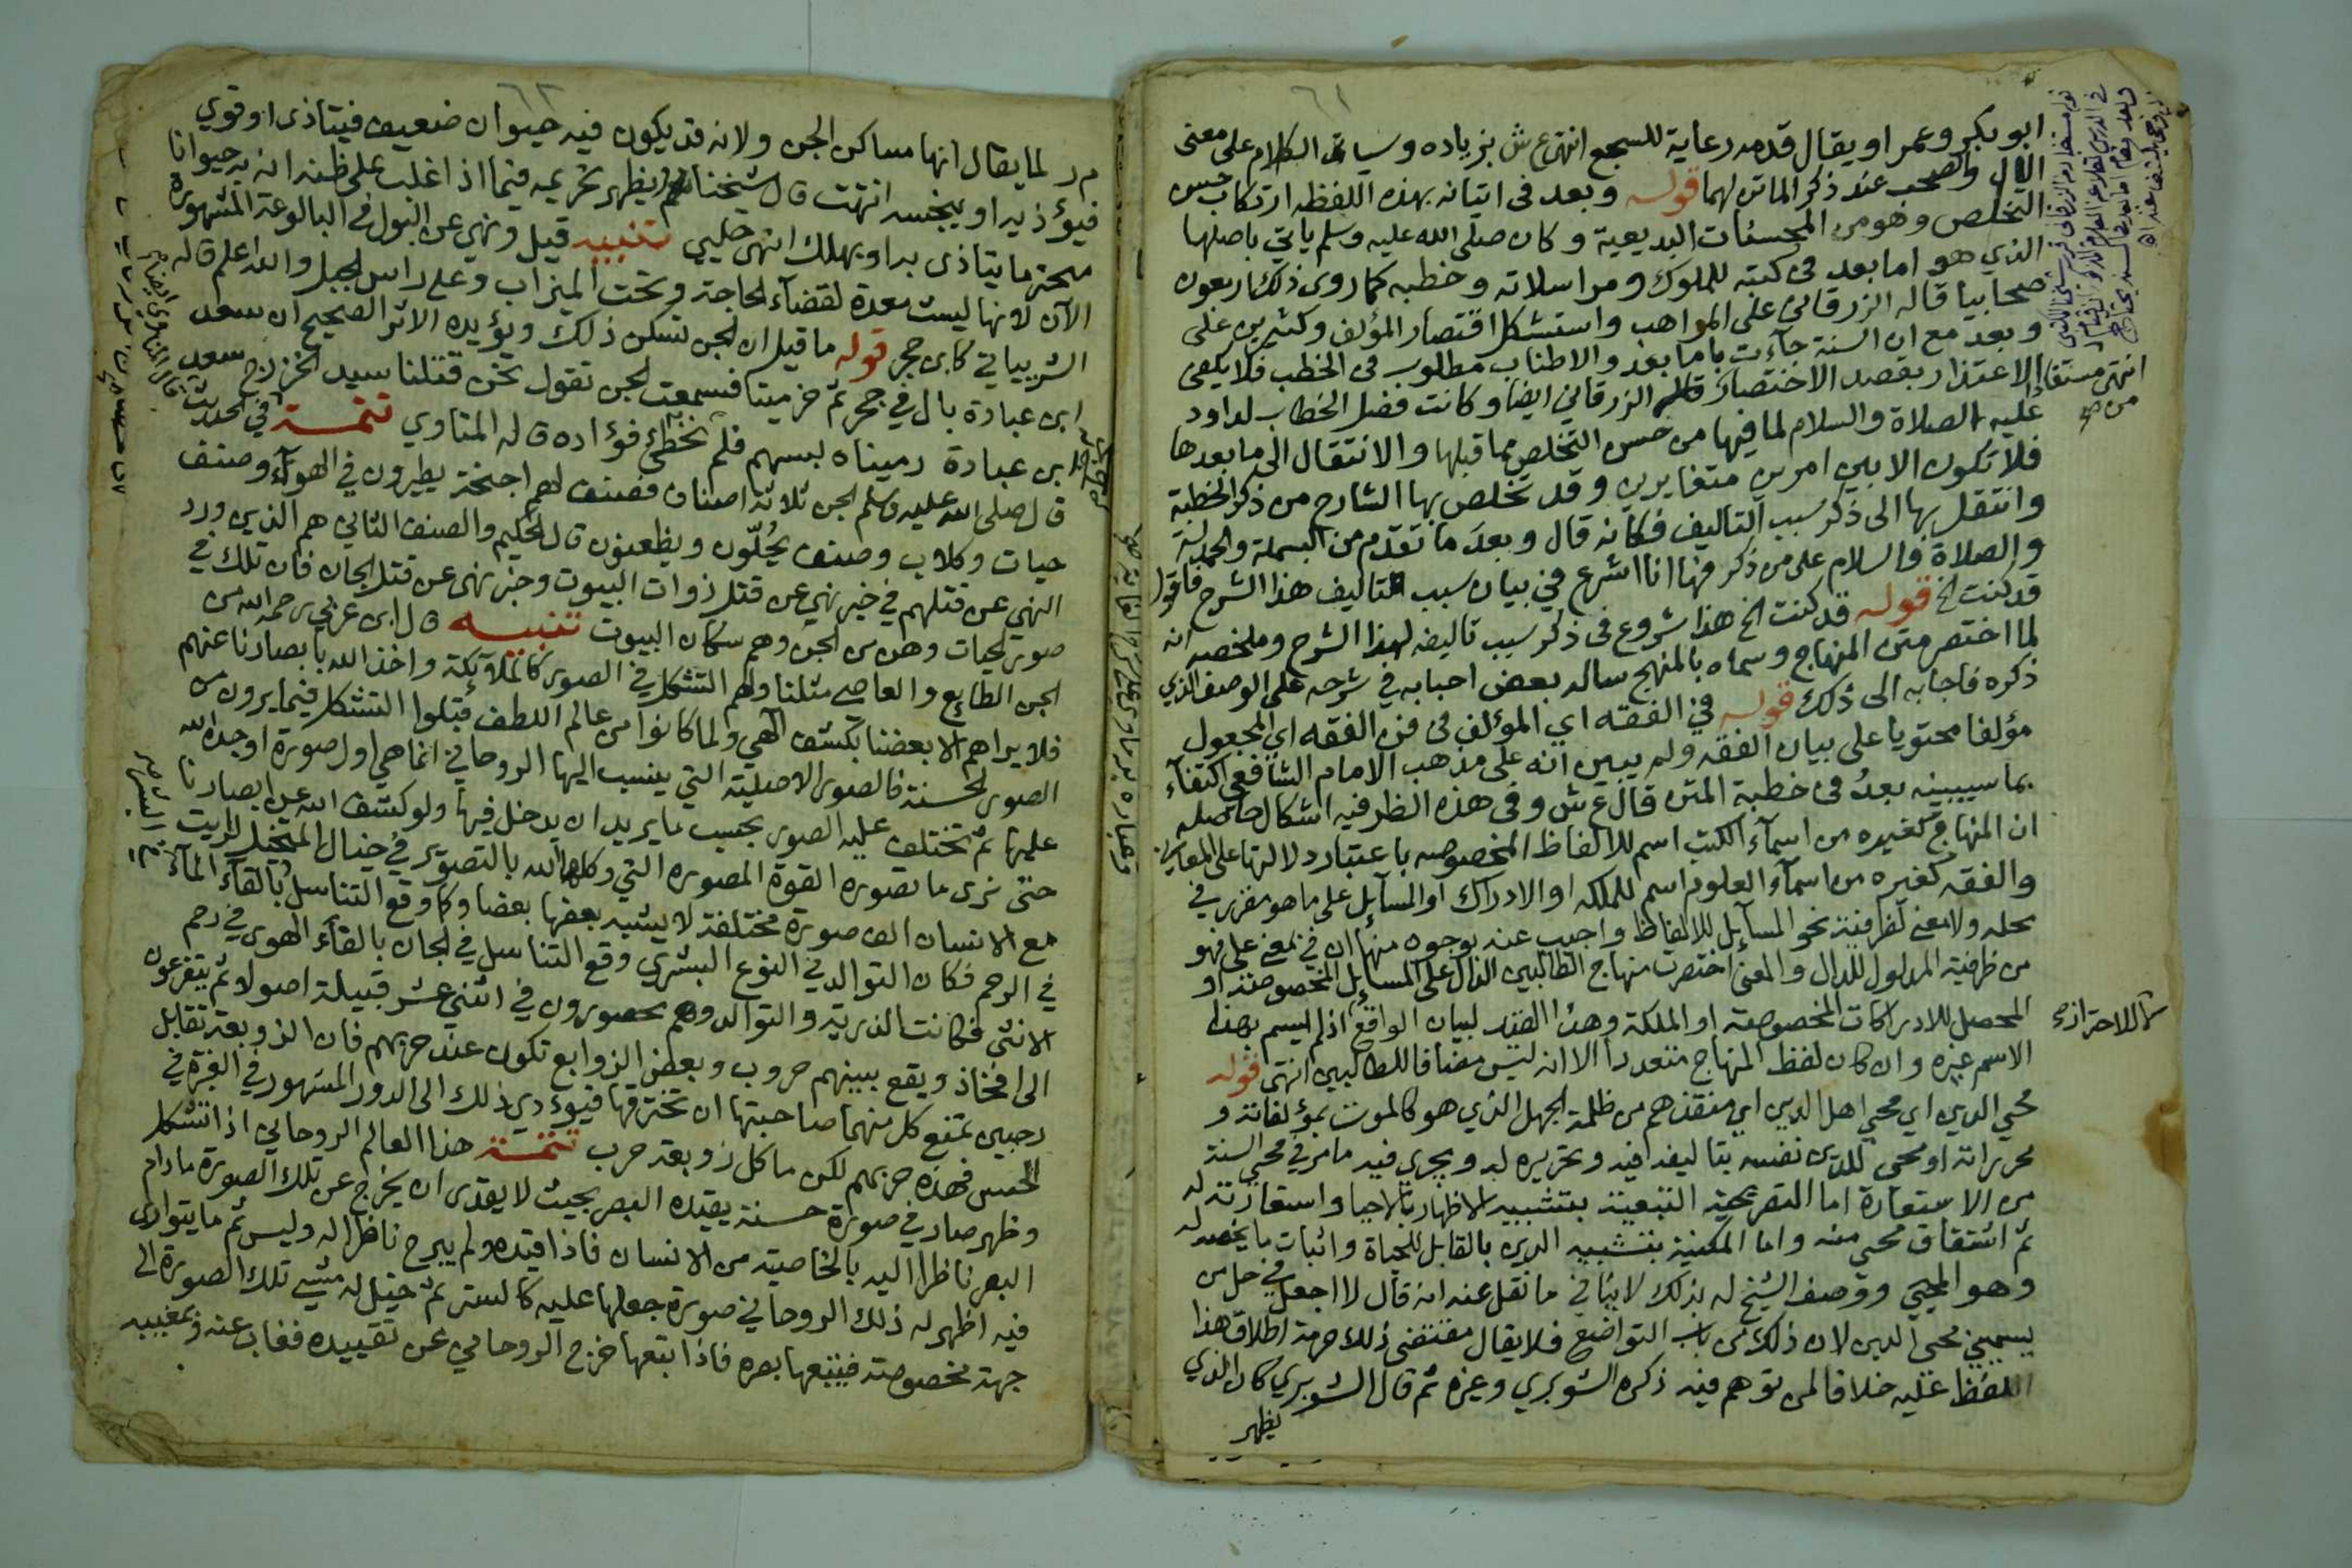 ابو بكر وعمر او يقال قدمه رعاية للسجع انتهى ع ش بزياده وسياق الكلام على معنى
الال والصحب عند ذكر الماتن لهما قوله وبعد فى اتيانه بهذه اللفظه ارتكاب حسن
التخلص وهو من المحسنات البديعية وكان صلى الله عليه وسلم ياتي باصلها
الذي هو اما بعد فى كتبه للملوك ومراسلاته وخطبه كما روى ذلك اربعون
صحابيا قاله الزرقانى على المواهب واستشكل اقتصار المؤلف وكثيرين على
وبعد مع ان السنة جآءت باما بعد والاطناب مطلوب فى الخطب فلا يكفى
الاعتذار بقصد الاختصار قاله الزرقاني ايضا وكانت فصل الخطاب لداود
عليه الصلاة والسلام لما فيها من حسن التخلص مما قبلها والانتقال الى ما بعدها
فلا تكون الا بين امرين متغايرين وقد تخلص بها الشارح من ذكر الخطبة
وانتقل بها الى ذكر سبب التاليف فكانه قال وبعد ما تقدم من البسملة والحمدلة
والصلاة والسلام على من ذكر فها انا اشرع في بيان سبب التاليف هذا الشرح فاقول
قد كنت الخ قوله قد كنت الخ هذا شروع فى ذكر سبب تاليفه لهذا الشرح وملخصه انه
لما اختصر متن المنهاج وسماه بالمنهج ساله بعض احبابه في شرحه على الوصف الذي
ذكره فاجابه الى ذلك قوله في الفقه اي المؤلف فى فن الفقه اي المجعول
مؤلفا محتويا على بيان الفقه ولم يبين انه على مذهب الامام الشافعي اكتفآء
بما سيبينه بعدُ فى خطبة المتن قال ع ش وفى هذه الظرفيه اشكال حاصله
ان المنهاج كغيره من اسمآء الكتب اسم للالفاظ المخصوصه باعتبار دلالتها على المعاني
والفقه كغيره من اسمآء العلوم اسم للملكه او الادراك او المسآئل على ما هو مقرر في
محله ولا معنى لظرفيته نحو المسآئل للالفاظ واجيب عنه بوجوه منها ان في بمعنى على فهو
من ظرفية المدلول للدال والمعنى اختصرت منهاج الطالبين الدال على المسآئل المخصوصة او
المحصل للادراكات المخصوصة او الملكة وهذا القيد لبيان الواقع اذ لم يسم بهذا
الاسم غيره وان كان لفظ المنهاج متعددا الا انه ليس مضافا للطالبين انتهى قوله
محيي الدين اي محيي اهل الدين اي منقذهم من ظلمة الجهل الذي هو كالموت بمؤلفاته و
محرراته او محيي للدين نفسه بتاليفه فيه وتحريره له ويجري فيه ما مر في محيي السنة
من الاستعارة اما التصريحية التبعية بتشبيه الاظهار بالاحيا واستعارته له
ثم اشتقاق محيي منه واما المكنية بتشبيه الدين بالقابل للحياة واثبات ما يخصه له
وهو المحيي ووصف الشيخ له بذلك لاينافي ما نقل عنه انه قال لا اجعل في حل من
يسميني محيي الدين لان ذلك من باب التواضع فلا يقال مقتضى ذلك حرمة اطلاق هذا
اللفظ عليه خلافا لمن توهم فيه ذكره الشوبري وغيره ثم قال الشوبري كان الذي
يظهر
لا للاحتراز
انتهى
م ر لما يقال انها مساكن الجن ولانه قد يكون فيه حيوان ضعيف فيتاذى او قوي
فيؤذيه او ينجسه انتهت قال شيخنا يظهر تحريمه فيما اذا غلب على ظنه ان به حيوانا
محترما يتاذى به او يهلك انتهى حلبي تنبيه قيل ونهي عن البول في البالوعة المشهورة
الآن لانها ليست معدة لقضآء الحاجة وتحت الميزاب وعلى راس الجبل والله اعلم قاله
الشربيني كابن حجر قوله ما قيل ان الجن تسكن ذلك ويؤيده الاثر الصحيح ان سعد
ابن عبادة بال في جحر ثم خر ميتا فسمعت الجن تقول نحن قتلنا سيد الخزرج سعد
ابن عبادة رميناه بسهم فلم نخطئ فؤاده قاله المناوي تتمة في الحديث
قال صلى الله عليه وسلم الجن ثلاثة اصناف فصنف لهم اجنحة يطيرون في الهوآء وصنف
حيات وكلاب وصنف يحُلّون ويظعنون قال الحكيم والصنف الثاني هم الذين ورد
النهي عن قتلهم في خبر نهي عن قتل ذوات البيوت وخبر نهى عن قتل الجان فان تلك في
صور الحيات وهن من الجن وهم سكان البيوت تنبيه قال ابن عربي رحمه الله من
الجن الطايع والعاصي مثلنا ولهم التشكل في الصور كالملآئكة واخذ الله بابصارنا عنهم
فلا يراهم الا بعضنا بكشف الهي ولما كانوا من عالم اللطف قبلوا التشكل فيما يرون من
الصور الحسنة فالصور الاصلية التي ينسب اليها الروحاني انما هي اول صورة اوجده الله
عليها ثم تختلف عليه الصور بحسب ما يريد ان يدخل فيها ولو كشف الله عن ابصارنا
حتى نرى ما تصوره القوة المصوره التي وكلها الله بالتصوير في خيال المتخيل لرايت
مع الانسان الف صورة مختلفة لا يشبه بعضها بعضا وكما وقع التناسل بالقآء المآء
في الرحم فكان التوالد في النوع البشري وقع التناسل في الجان بالقآء الهوى في رحم
الانثى فكانت الذرية والتوالد وهم محصورون في اثني عشر قبيلة اصولا ثم يتفرعون
الى افخاذ ويقع بينهم حروب وبعض الزوابع تكون عند حربهم فان الزوبعة تقابل
ريحين تمنع كل منهما صاحبتها ان تخترقها فيؤدي ذلك الى الدور المشهور في الغبرة في
الحس فهذه حربهم لكن ما كل زوبعة حرب تتمة هذا العالم الروحاني اذا تشكل
وظهر صار في صورة حسنة يقيده البصر بحيث لا يقدر ان يخرج عن تلك الصورة ما دام
البصر ناظرا اليه بالخاصية من الانسان فاذا قيده ولم يبرح ناظرا له وليس ثم ما يتوارى
فيه اظهر له ذلك الروحاني صورة جعلها عليه كالستر ثم خيل له مشي تلك الصورة الى
جهة مخصوصة فيتبعها بصره فاذا تبعها خرج الروحاني عن تقييده فغاب عنه وبمغيبه